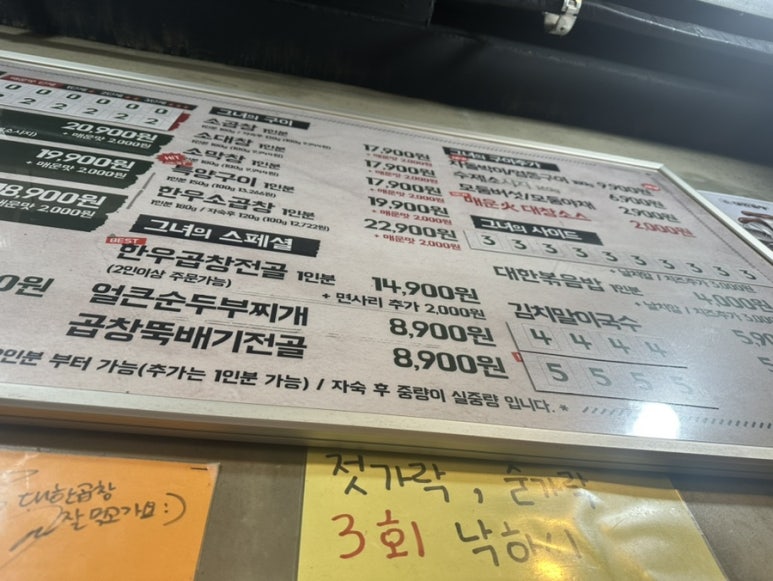 0 0 0 0 0
2 2 2 2 2
20,900원
+ 매운맛 2,000원
19,900원
+ 매운맛 2,000원
18,900원
+ 매운맛 2,000원
그녀의 구이
소곱창 1인분
17,900원
+ 매운맛 2,000원
소대창 1인분
17,900원
+ 매운맛 2,000원
HIT
소막창 1인분
17,900원
+ 매운맛 2,000원
특양구이 1인분
19,900원
+ 매운맛 2,000원
한우소곱창 1인분
한우 180g / 자숙후 120g (100g 12,722원)
22,900원
+ 매운맛 2,000원
그녀의 스페셜
BEST
한우곱창전골 1인분
(2인이상 주문가능)
14,900원
+ 면사리 추가 2,000원
얼큰순두부찌개
8,900원
곱창뚝배기전골
8,900원
2인분 부터 가능(추가는 1인분 가능) / 자숙 후 중량이 실중량 입니다.*
그녀의 구이추가
9,900원
수제소시지
6,900원
모둠버섯/모둠야채
2,900원
매운火 대창소스
2,000원
그녀의 사이드
3 3 3 3 3 3 3 3 3
대한볶음밥 1인분
4,000원
김치말이국수
4 4 4 4
5 5 5 5
대한곱창
잘 먹고가요 :)
젓가락, 숟가락
3회 낙하시